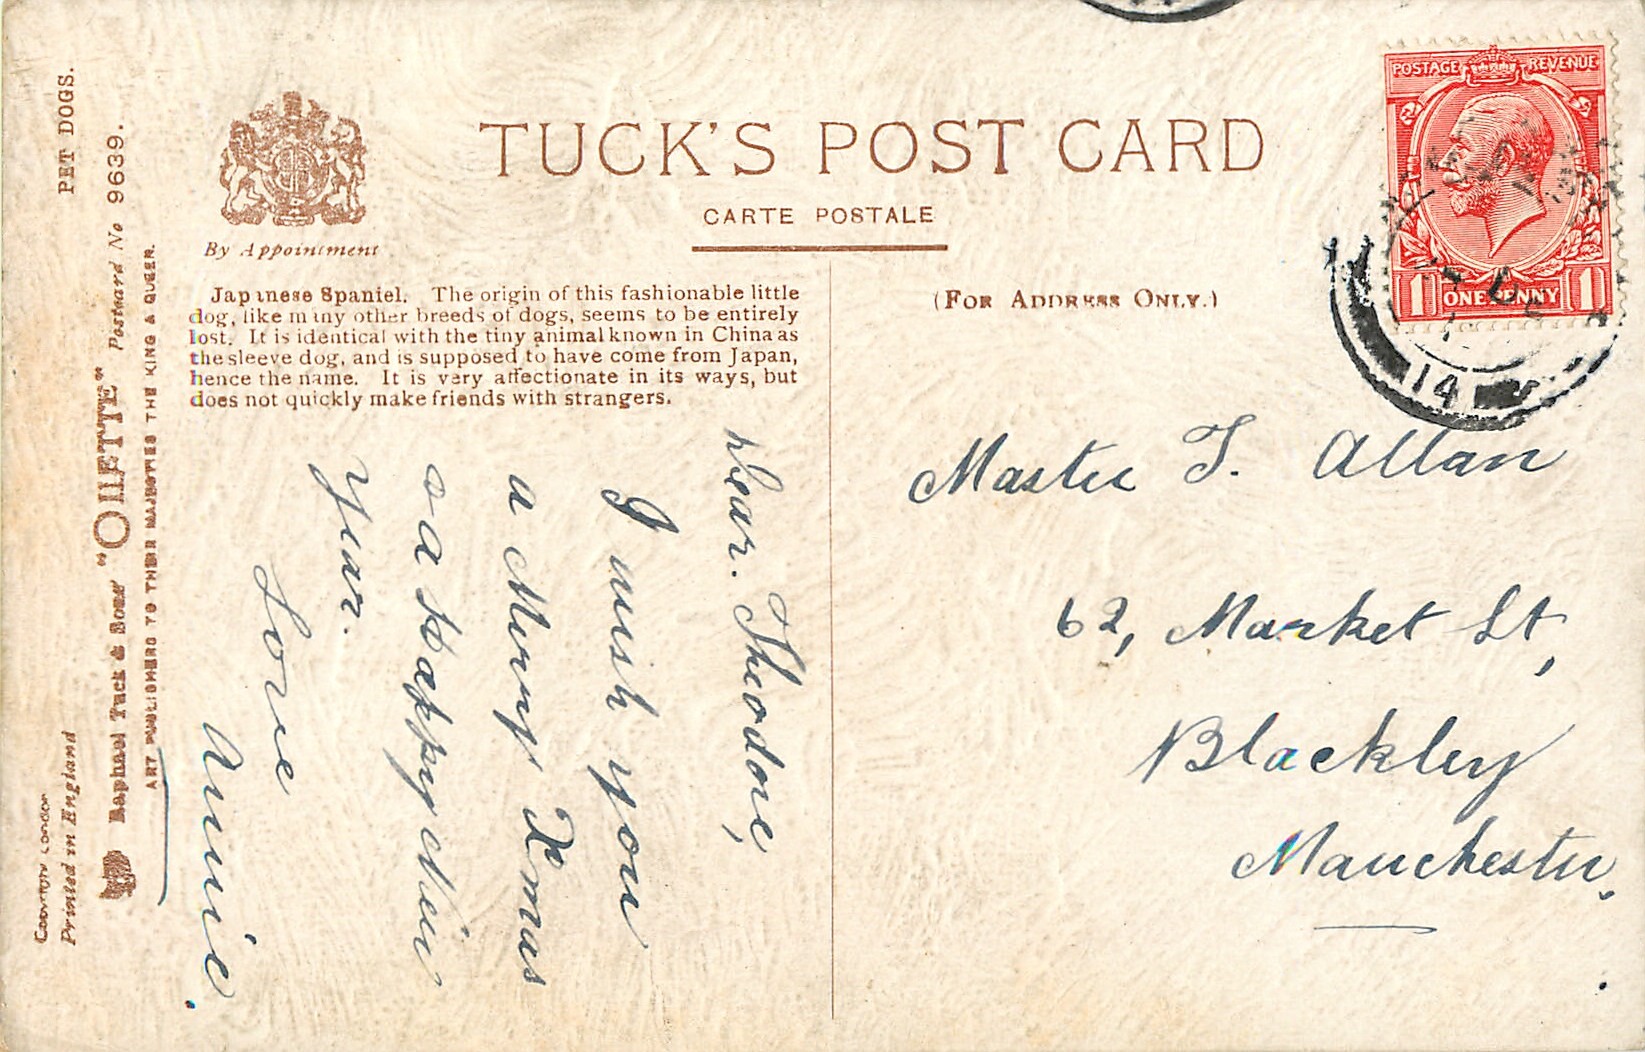 PET DOGS.
TUCK'S POST CARD
CARTE POSTALE
By Appointment
(FOR ADDRESS ONLY.)
POSTAGE REVENUE
1 ONE PENNY 1
14
Japanese Spaniel. The origin of this fashionable little
dog, like many other breeds of dogs, seems to be entirely
lost. It is identical with the tiny animal known in China as
the sleeve dog, and is supposed to have come from Japan,
hence the name. It is very affectionate in its ways, but
does not quickly make friends with strangers.
Dear. Theodore,
I wish you
a Merry Xmas
& a Happy New
Year.
Love
Annie.
Master T. Allan
62, Market St,
Blackley
Manchester,
Raphael Tuck & Sons' "OILETTE" Postcard No 9639.
ART PUBLISHERS TO THEIR MAJESTIES THE KING & QUEEN.
COPYRIGHT LONDON
Printed in England